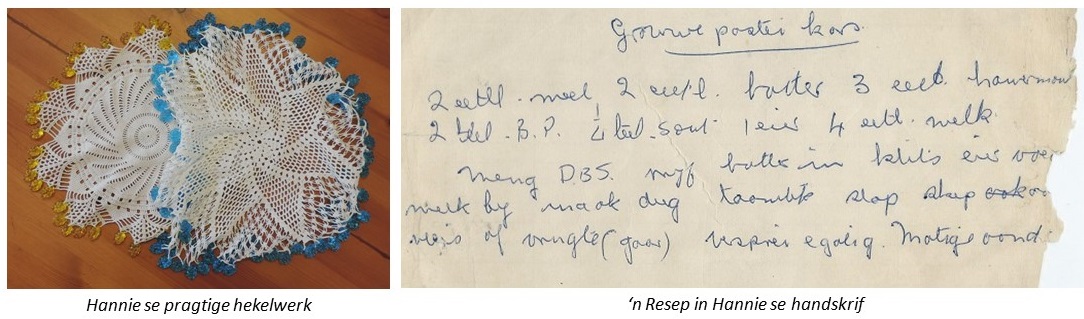 Growwe pastei kors.
2 eetl. meel, 2 eetl. botter 3 eetl. hawermou
2 teel. B.P. ¼ teel. sout 1 eier 4 eetl. melk.
Meng D.B.S. vryf botter in klits eier voe
melk by maak deeg slap skep
vleis of vrugte (gaar) versprei egalig. Matige oond
Hannie se pragtige hekelwerk
'n Resep in Hannie se handskrif